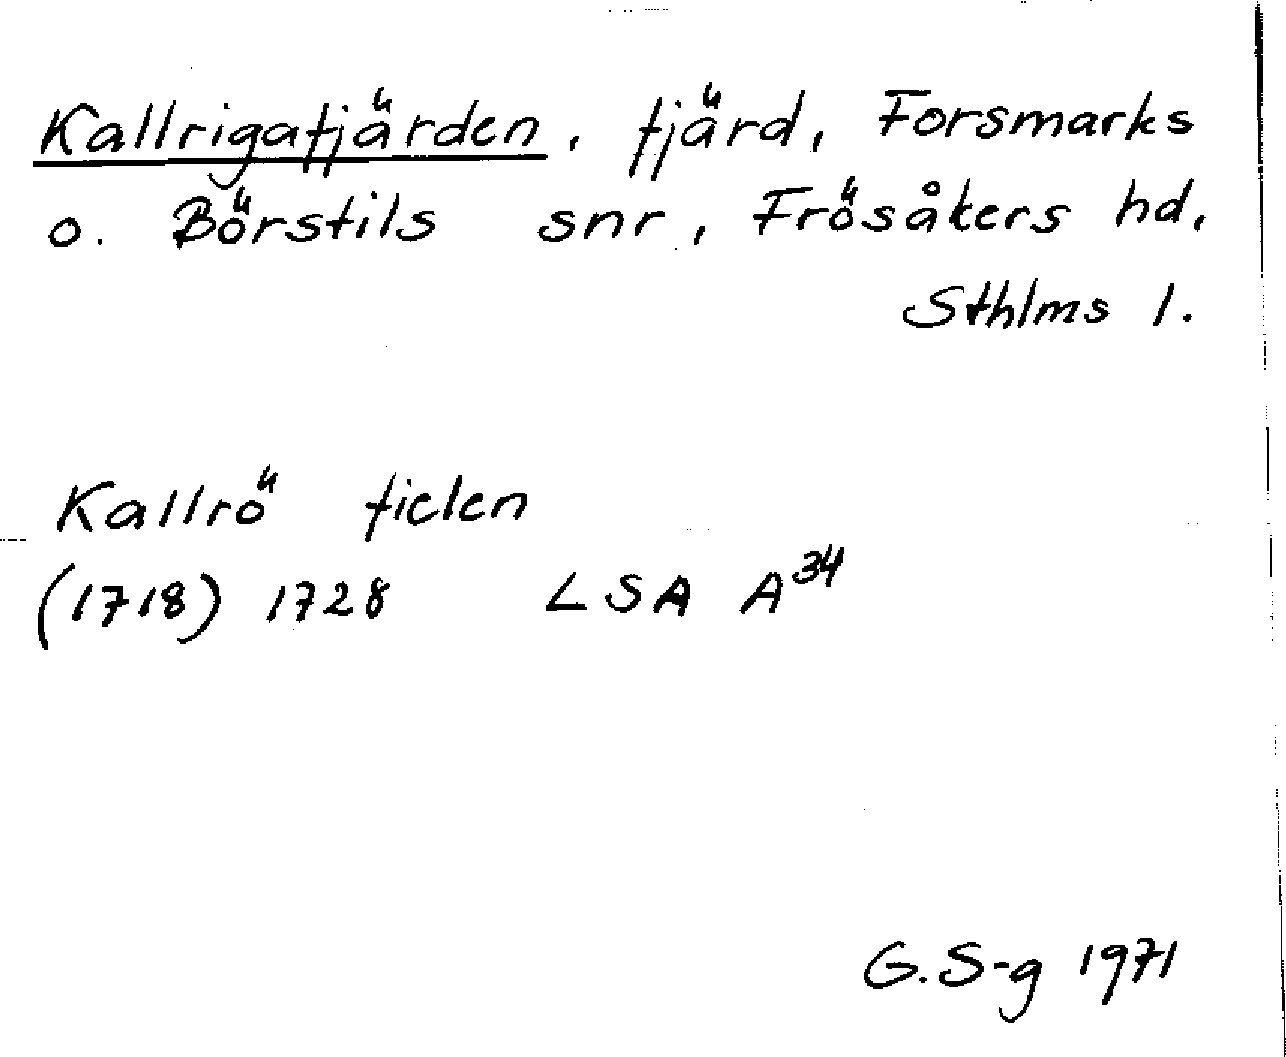 Kallrigafjärden, fjärd, Forsmarks
o. Börstils snr, Frösåkers hd,
Sthlms l.
Kallrö fielen
(1718) 1728 LSA A³⁴
G. S-g 1971